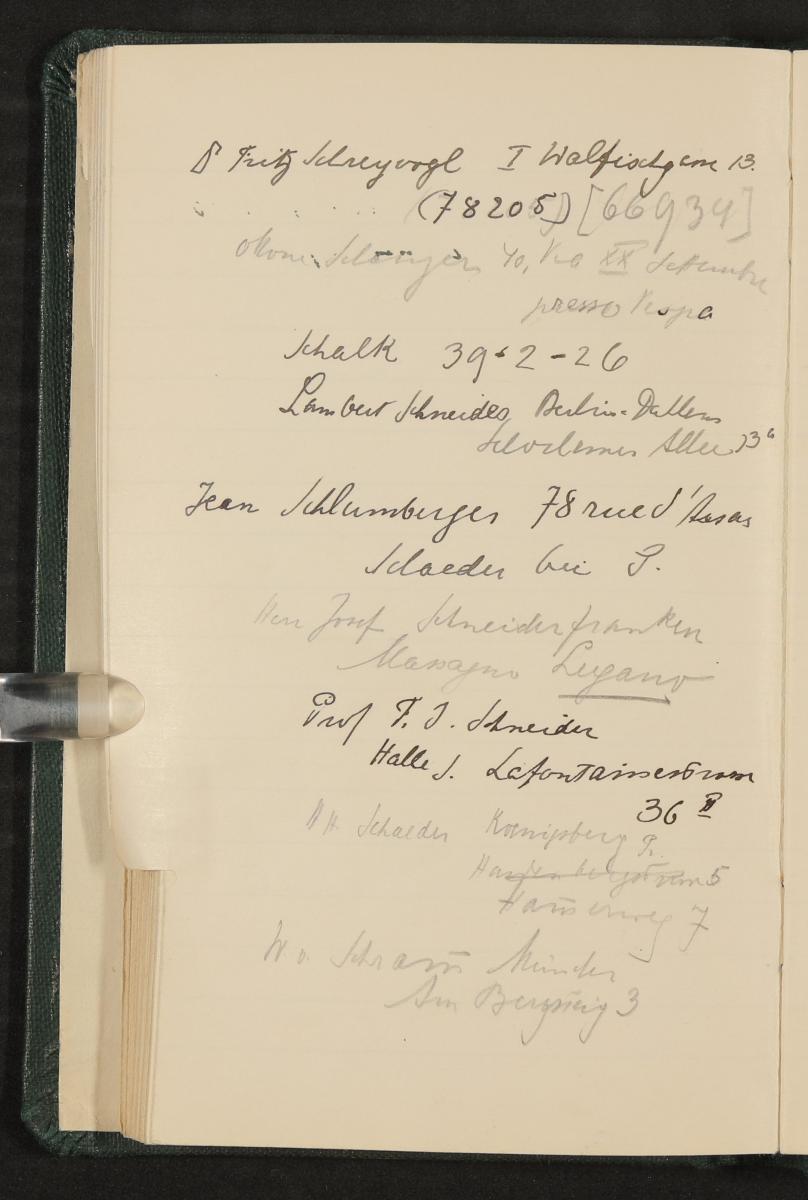 Dr Fritz Schreyvogl I Walfischgasse 13.
(78205) [66934]
40, Via XX Settembre
presso Vespa
Schalk 39-2-26
Lambert Schneider, Berlin-Dahlem
Allee
Jean Schlumberger 78 rue d'Assas
Schaeder bei S.
Herr Josef Schneiderfranken
Massagno Lugano
Prof F. J. Schneider
Halle S. Lafontainestrasse
36 II
H H. Schaeder Koenigsberg
Pr.
Hardenbergstrasse 5
Hansaweg 7
W v. Schramm München
Am Bergsteig 3